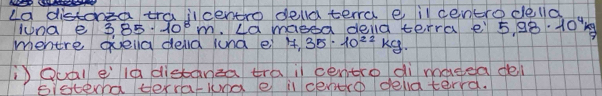 La distanza tra il centro della terra e il centro della
luna e 3,85 · 10⁸ m. La massa della terra e' 5,98 · 10⁴ kg
mentre quella della luna e' 7,35 · 10²² kg.
i) Qual e' la distanza tra il centro di massa del
sistema terra-luna e il centro della terra.